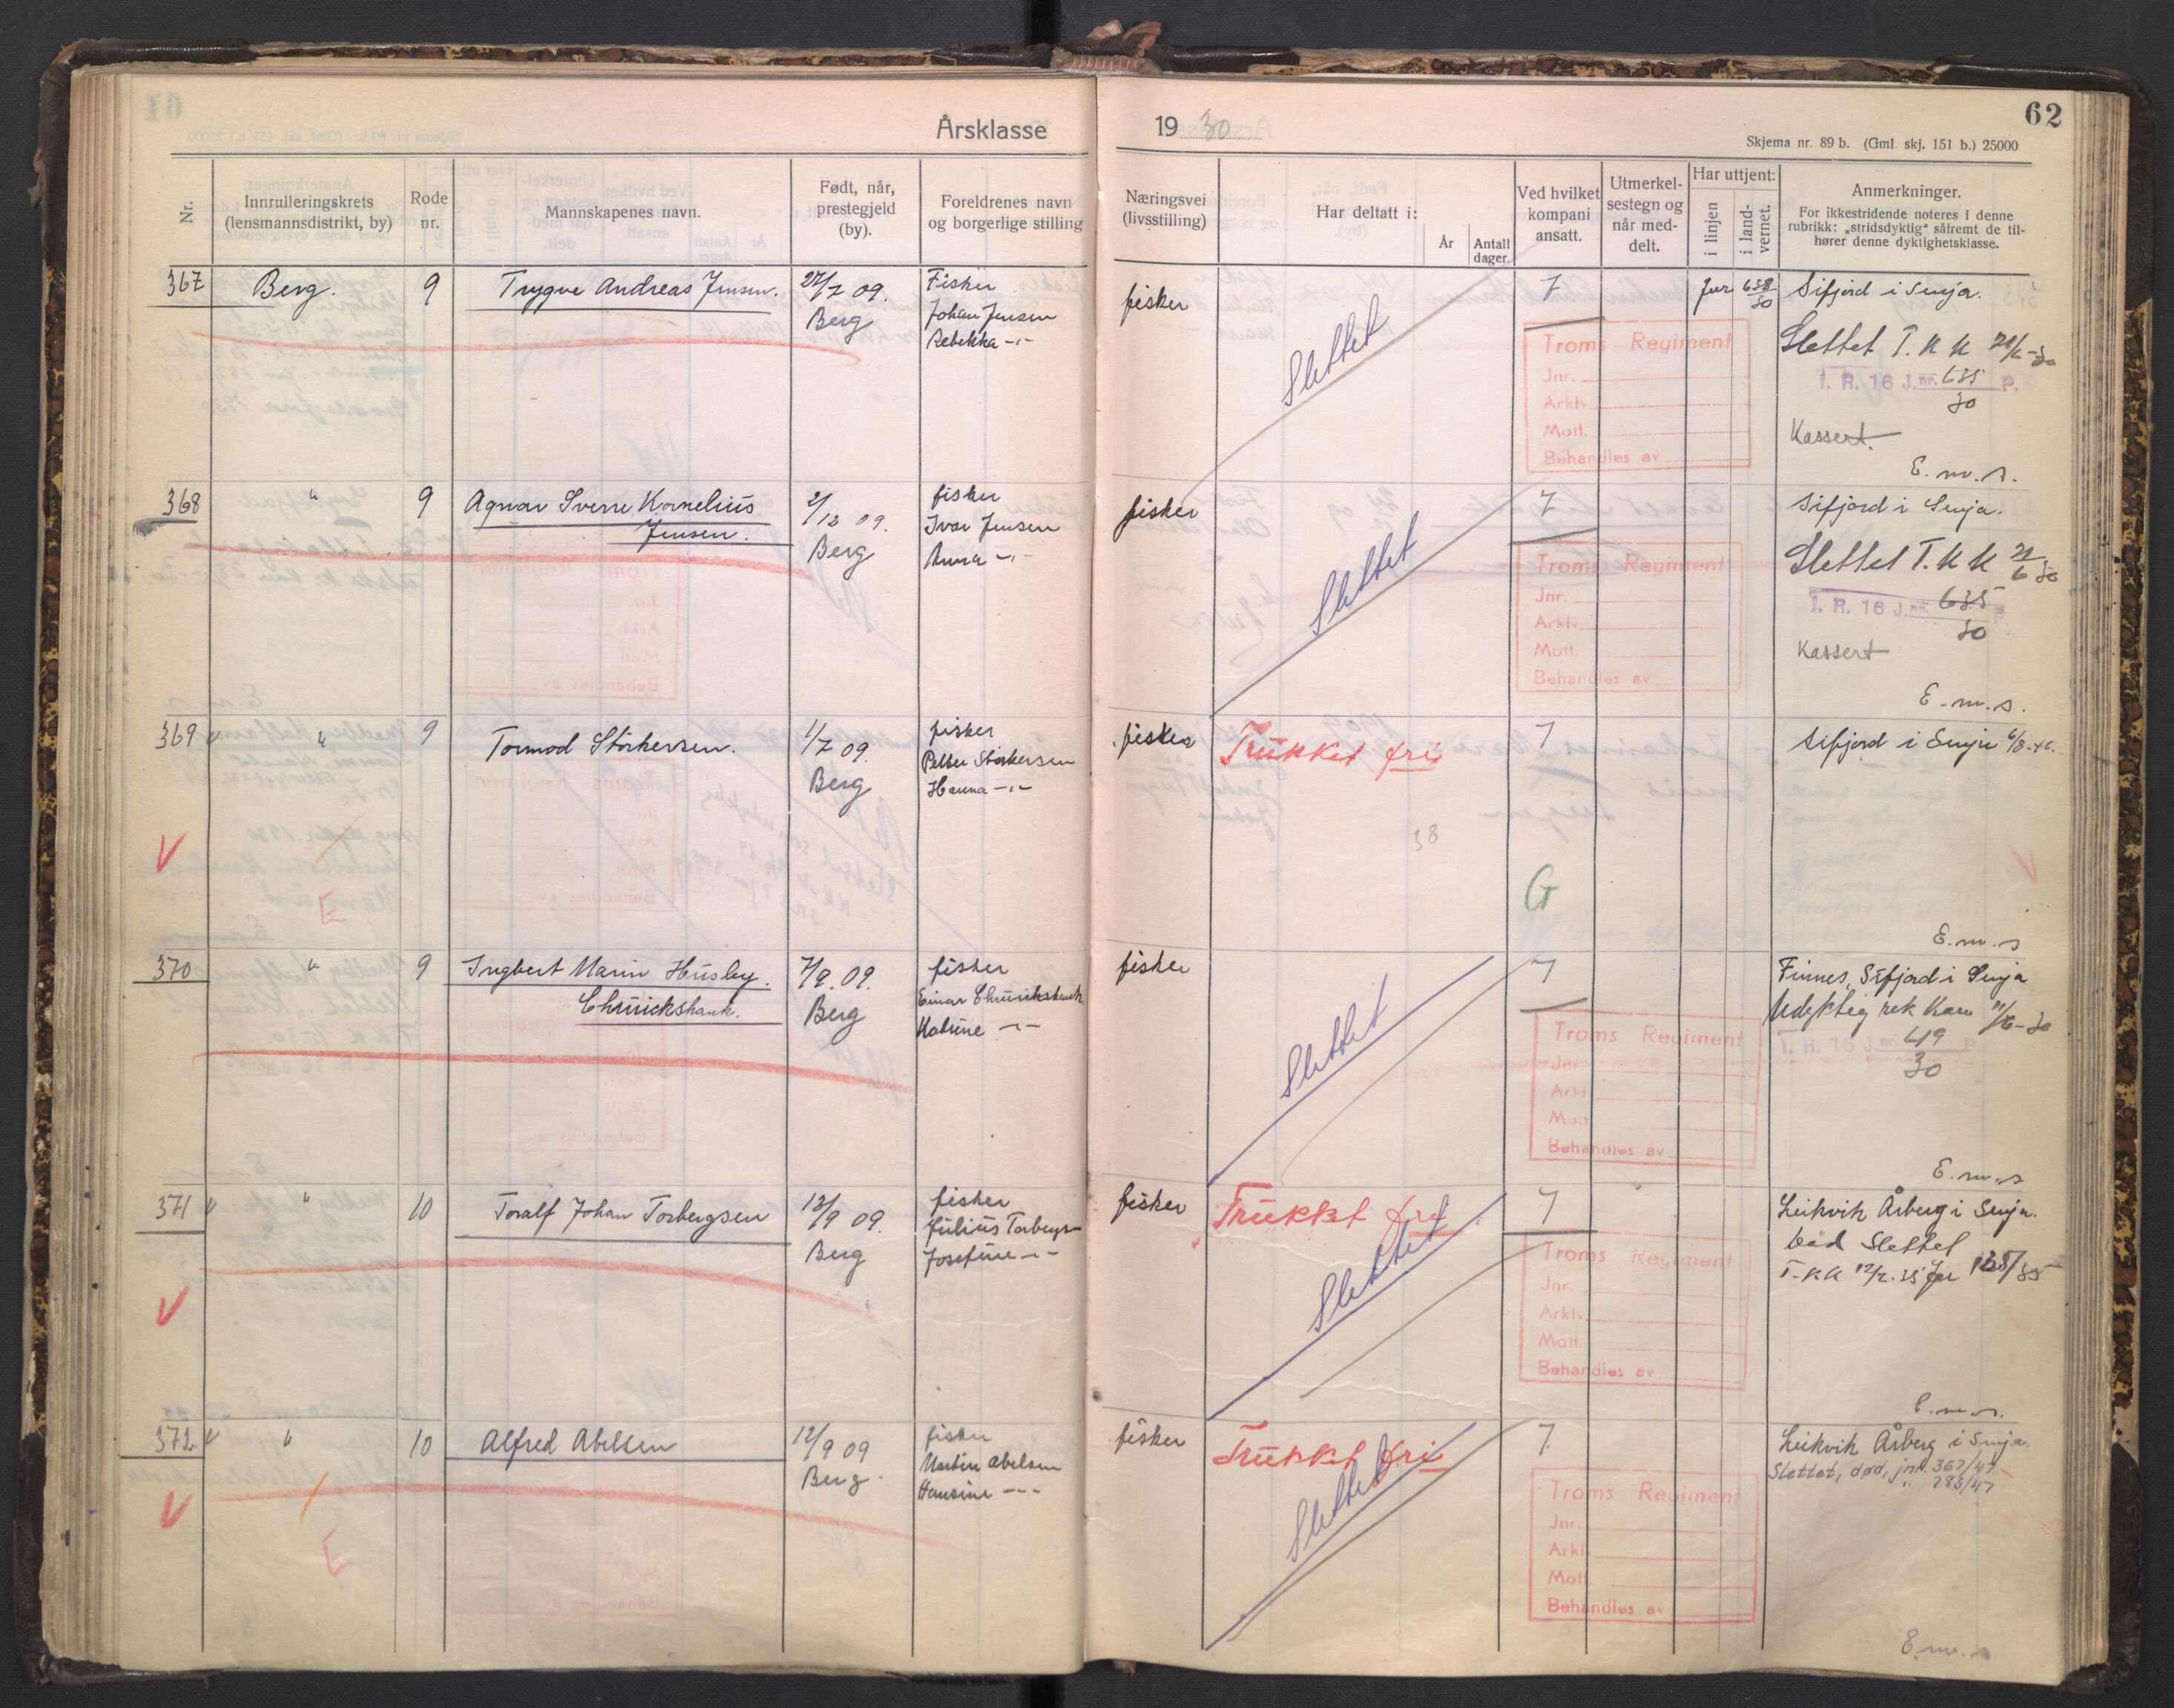 Årsklasse 1930
62
Skjema nr. 89 b. (Gml. skj. 151 b.) 25000
Nr.
Innrulleringskrets (lensmannsdistrikt, by)
Rode nr.
Mannskapenes navn.
Født, når, prestegjeld (by).
Foreldrenes navn og borgerlige stilling
Næringsvei (livsstilling)
Har deltatt i:
År
Antall dager.
Ved hvilket kompani ansatt.
Utmerkelsestegn og når meddelt.
Har uttjent:
i linjen
i landvernet.
Anmerkninger.
For ikkestridende noteres i denne rubrikk: „stridsdyktig“ såfremt de tilhører denne dyktighetsklasse.
367 Berg. 9 Trygve Andreas Jensen. 27/7 09. Fisker fisker 7 Jnr 638/30 Sifjord i Senja.
Berg Johan Jensen
Rebekka -"-
Slettet
Slettet T. K K 21/6-30
I. R. 16 J.nr. 635/30 P.
Kassert
E.m.s.
Troms Regiment
Jnr.
Arkiv
Mott.
Behandles av
368 " 9 Agnar Sverre Kornelius 2/12 09. fisker fisker 7 Sifjord i Senja.
Jensen. Berg Ivar Jensen
Anna -"-
Slettet
Slettet T. K K 21/6 30
I. R. 16 J.nr. 635/30 P
Kassert
E.m.s.
Troms Regiment
Jnr.
Arkiv.
Mott.
Behandles av
369 " 9 Tormod Størkersen. 1/7 09. fisker fisker Trukket fri 7 Sifjord i Senja 6/8-46.
Berg Petter Størkersen
Hanna -"-
38
V
E
G
E.m.s
370 " 9 Ingbert Marin Husby 7/9. 09. fisker fisker 7 Finnes, Sifjord i Senja
Chruickshank. Berg Einar Chruickshank
Katrine -"-
Slettet
Udyktig rek Kan 11/6-30
I. R. 16 J.nr. 619/30 P
E.m.s
Troms Regiment
Jnr.
Arkiv
Mott.
Behandles av
371 " 10 Toralf Johan Torbergsen 13/9 09. fisker fisker Trukket fri 7 Leikvik Årberg i Senja.
Berg Julius Torbergsen
Josefine -"-
Slettet
Død Slettet
T.K.K 12/2.35 Jnr 138/35
V
E.m.s.
Troms Regiment
Jnr.
Arkiv
Mott.
Behandles av
372 " 10 Alfred Abelsen 12/9 09 fisker fisker Trukket fri 7. Leikvik Årberg i Senja.
Berg. Martin Abelsen
Hansine -"-
Slettet
Slettet, død, jnr. 367/47
" 783/47
V
E
E.m.s
Troms Regiment
Jnr.
Arkiv
Mott
Behandles av